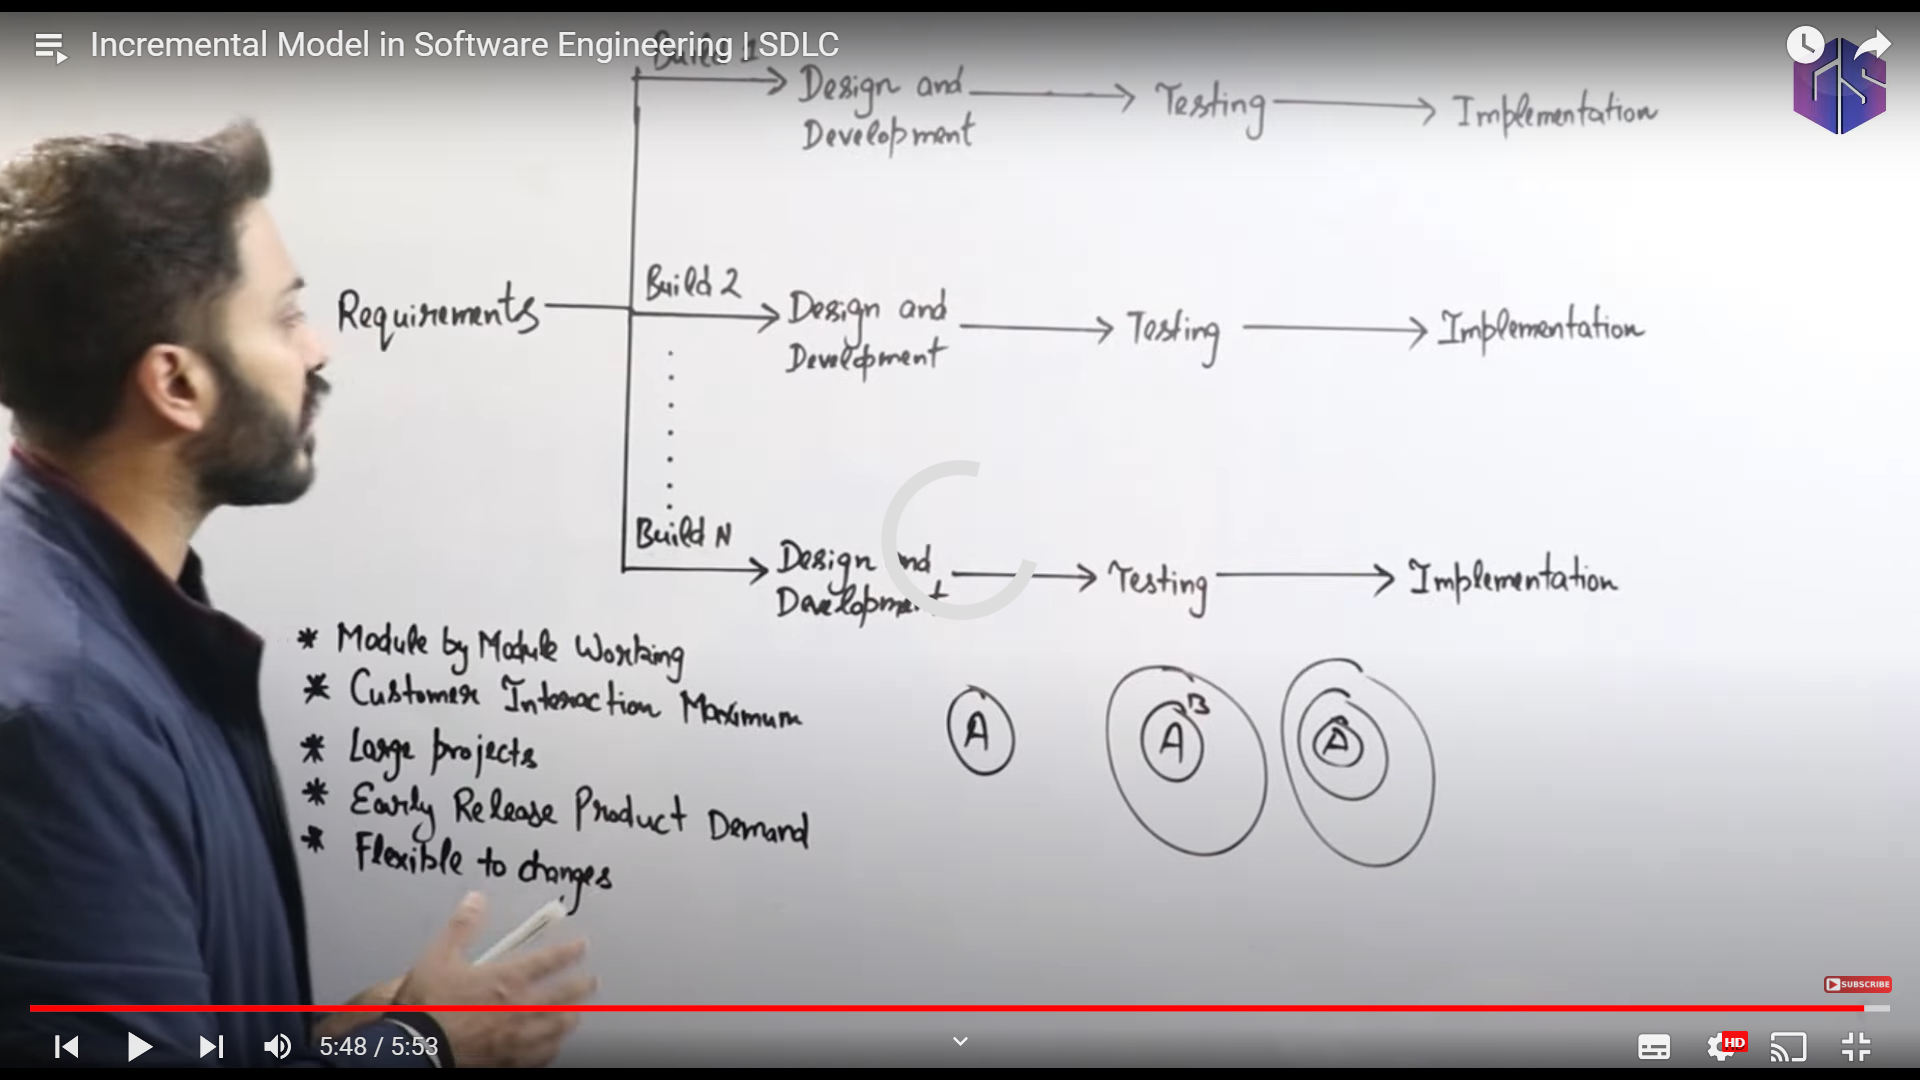 Incremental Model in Software Engineering | SDLC
Build 1
Design and
Development
Testing
Implementation
Requirements
Build 2
Design and
Development
Testing
Implementation
Build N
Design and
Development
Testing
Implementation
* Module by Module Working
* Customer Interaction Maximum
* Large projects
* Early Release Product Demand
* Flexible to changes
A
A
B
A
SUBSCRIBE
5:48 / 5:53
HD